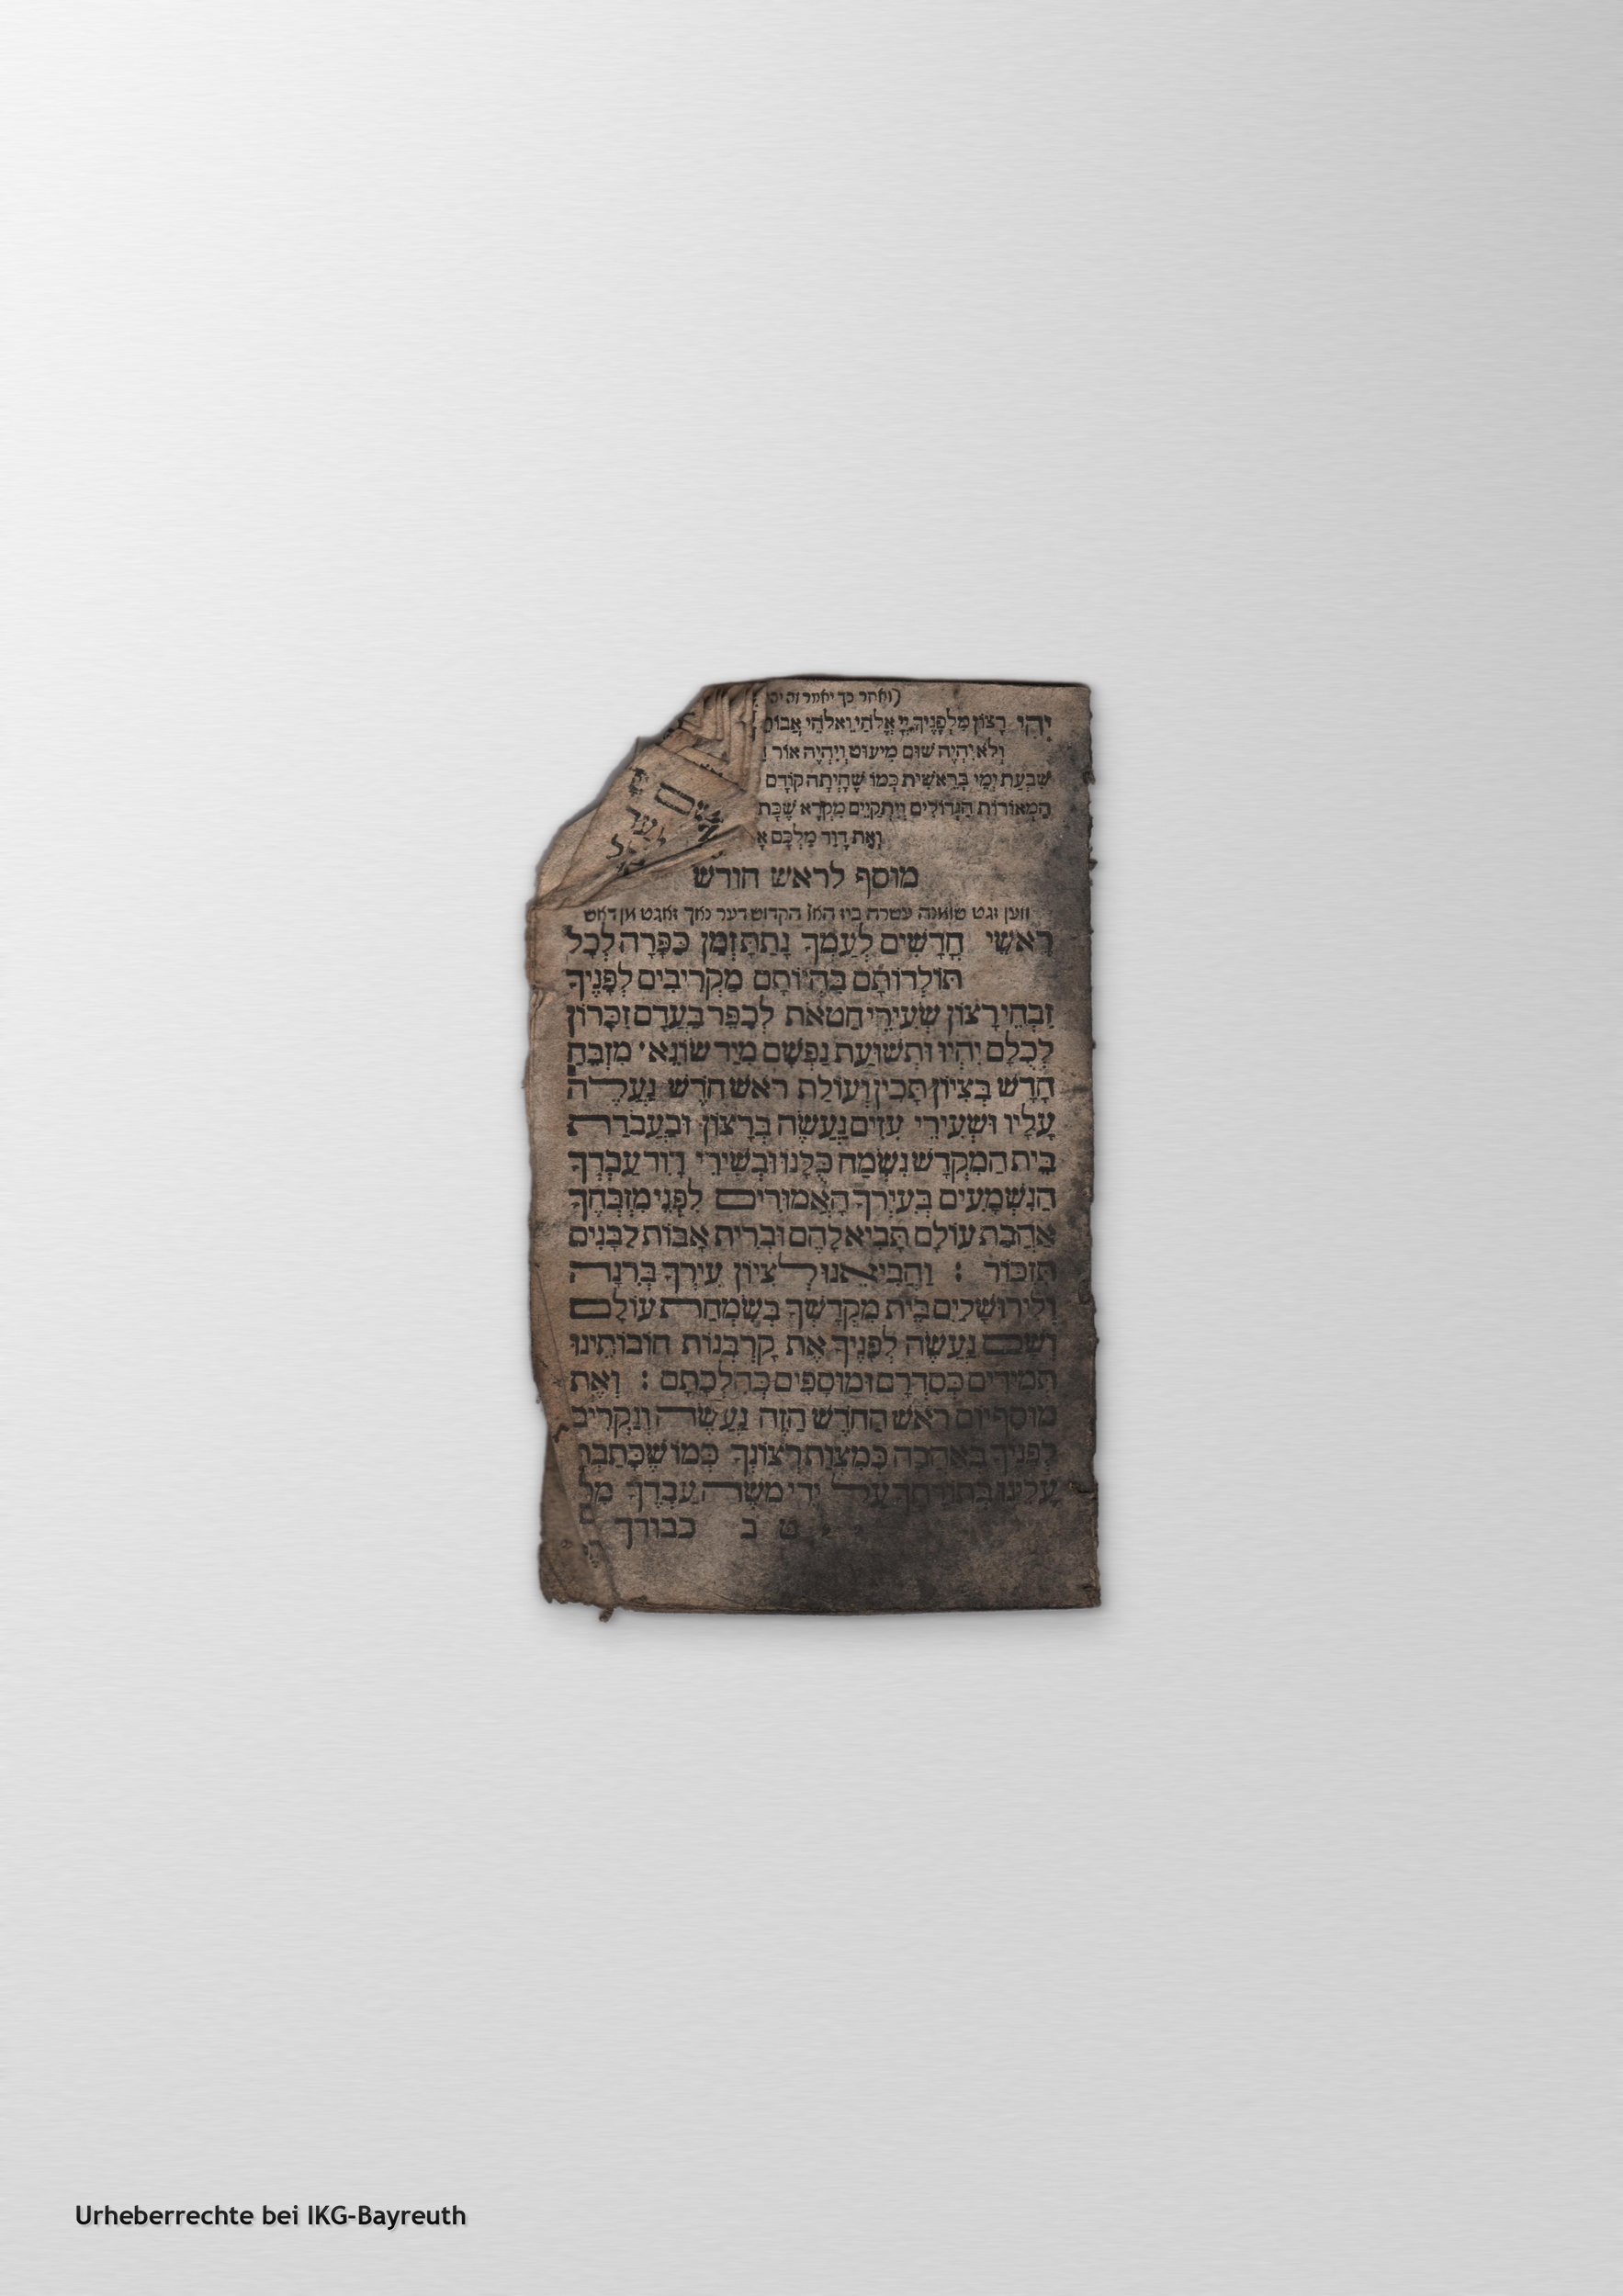 (ואחר כך יאמר זה
יְהִי רָצוֹן מִלְּפָנֶיךָ יְיָ אֱלֹהַי וֵאלֹהֵי אֲבוֹתַ
וְלֹא יִהְיֶה שׁוּם מִיעוּט וְיִהְיֶה אוֹר
שִׁבְעַת יְמֵי בְרֵאשִׁית כְּמוֹ שֶׁהָיְתָה קוֹדֶם
הַמְּאוֹרוֹת הַגְּדוֹלִים וְיִתְקַיֵּים מִקְרָא שֶׁכָּת
וְאֶת דָּוִד מַלְכָּם
מוסף לראש חודש
רָאשֵׁי חֳדָשִׁים לְעַמְּךָ נָתַתָּ זְמַן כַּפָּרָה לְכָל
תּוֹלְדוֹתָם בִּהְיוֹתָם מַקְרִיבִים לְפָנֶיךָ
זִבְחֵי רָצוֹן שְׂעִירֵי חַטָּאת לְכַפֵּר בַּעֲדָם זִכָּרוֹן
לְכֻלָּם יִהְיוּ וּתְשׁוּעַת נַפְשָׁם מִיַּד שׂוֹנֵא׳ מִזְבֵּחַ
חָדָשׁ בְּצִיּוֹן תָּכִין וְעוֹלַת רֹאשׁ חֹדֶשׁ נַעֲלֶה
עָלָיו וּשְׂעִירֵי עִזִּים נַעֲשֶׂה בְרָצוֹן וּבַעֲבֹדַת
בֵּית הַמִּקְדָּשׁ נִשְׂמַח כֻּלָּנוּ וּבְשִׁירֵי דָוִד עַבְדְּךָ
הַנִּשְׁמָעִים בְּעִירְךָ הָאֲמוּרִים לִפְנֵי מִזְבְּחֶךָ
אַהֲבַת עוֹלָם תָּבִיא לָהֶם וּבְרִית אָבוֹת לַבָּנִים
תִּזְכּוֹר : וַהֲבִיאֵנוּ לְצִיּוֹן עִירְךָ בְּרִנָּה
וְלִירוּשָׁלַיִם בֵּית מִקְדָּשְׁךָ בְּשִׂמְחַת עוֹלָם
וְשָׁם נַעֲשֶׂה לְפָנֶיךָ אֶת קָרְבְּנוֹת חוֹבוֹתֵינוּ
תְּמִידִים כְּסִדְרָם וּמוּסָפִים כְּהִלְכָתָם : וְאֶת
מוּסַף יוֹם רֹאשׁ הַחֹדֶשׁ הַזֶּה נַעֲשֶׂה וְנַקְרִיב
לְפָנֶיךָ בְּאַהֲבָה כְּמִצְוַת רְצוֹנֶךָ כְּמוֹ שֶׁכָּתַבְתָּ
עָלֵינוּ בְּתוֹרָתֶךָ עַל יְדֵי מֹשֶׁה עַבְדֶּךָ
כבודך
Urheberrechte bei IKG-Bayreuth